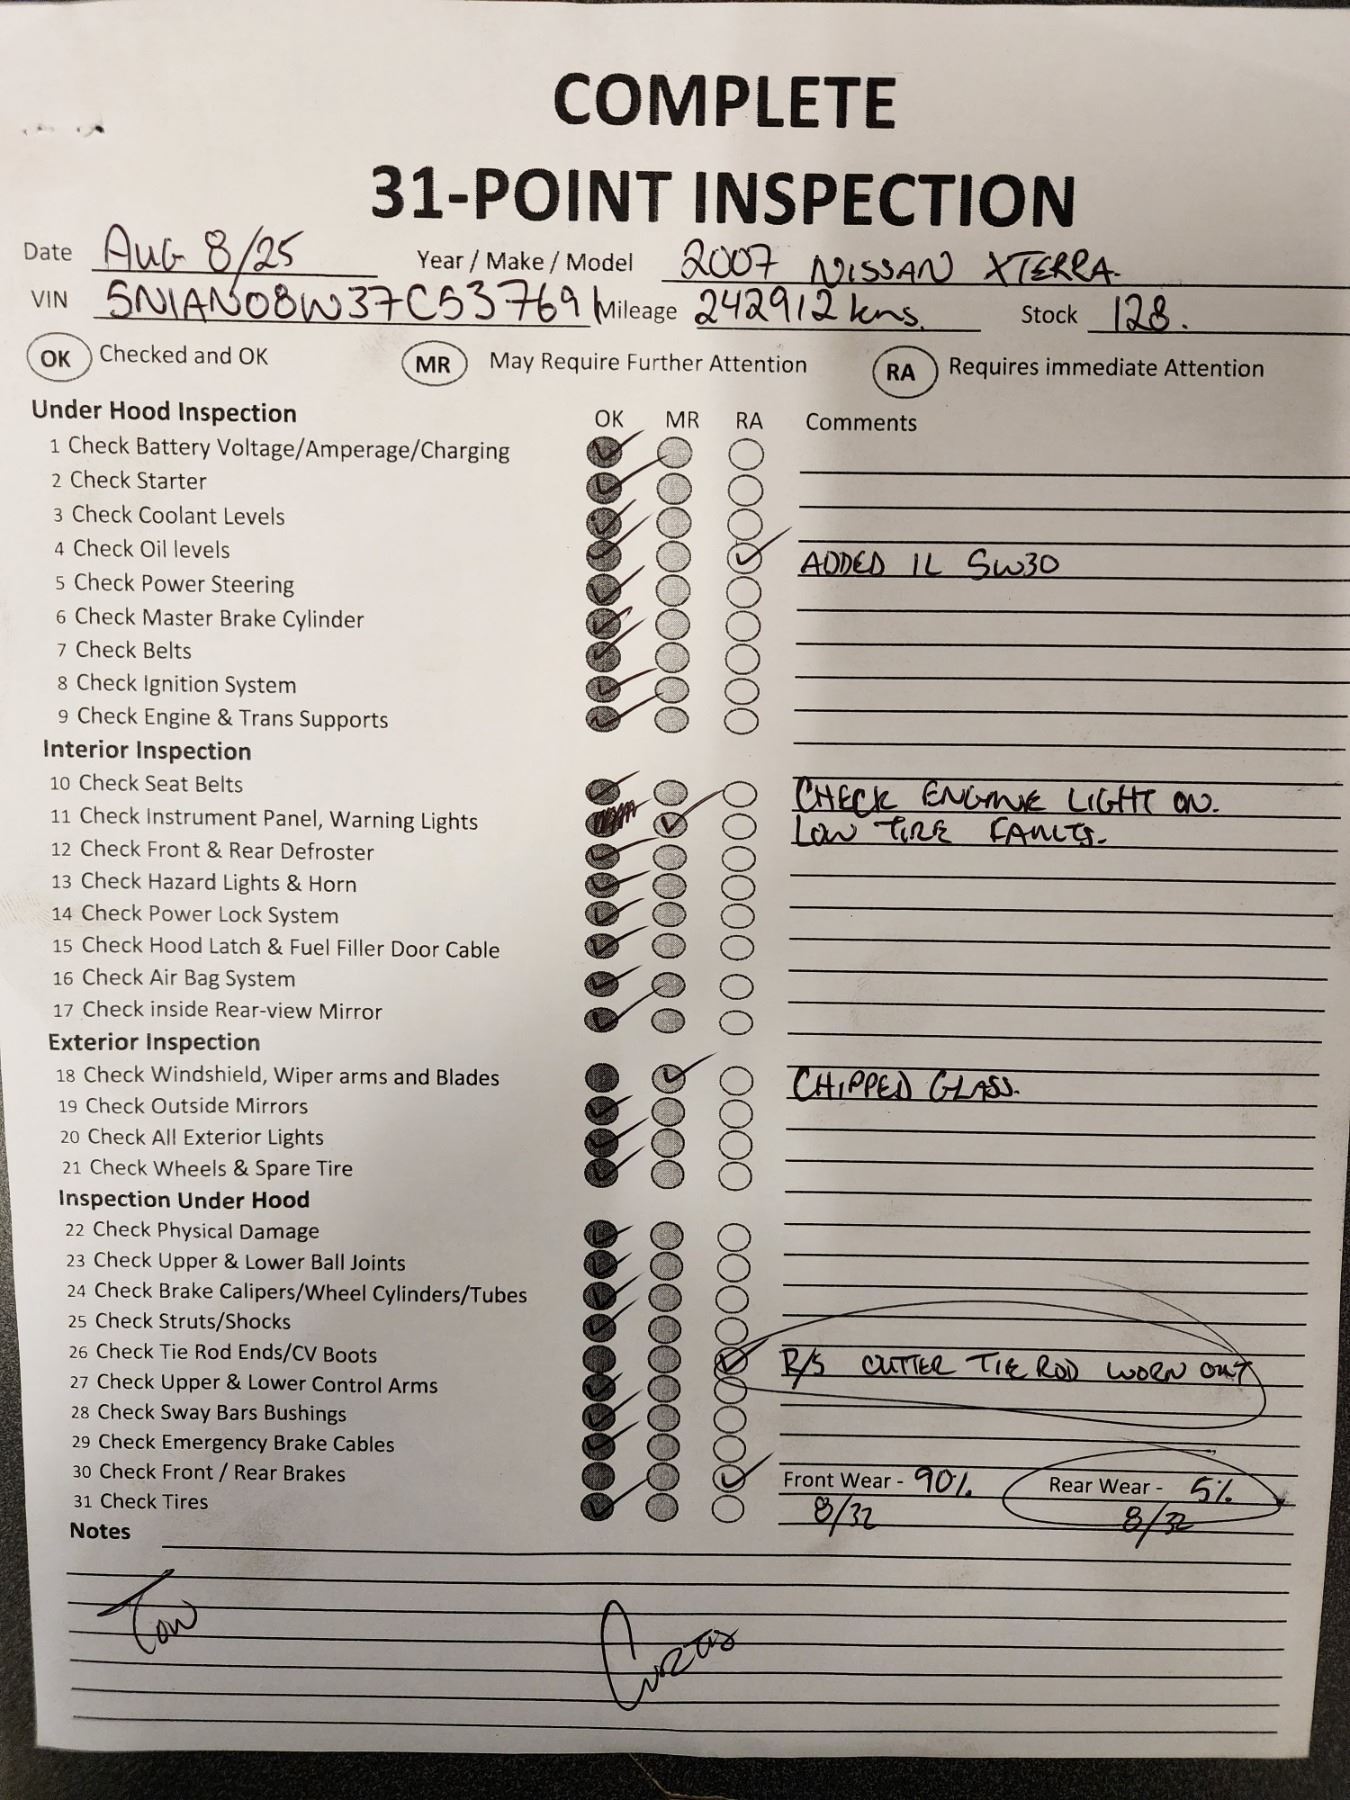 COMPLETE
31-POINT INSPECTION
Date Aug 8/25 Year / Make / Model 2007 NISSAN XTERRA.
VIN 5N1AN08W37C537691 Mileage 242912 kms. Stock 128.
OK Checked and OK MR May Require Further Attention RA Requires immediate Attention
Under Hood Inspection OK MR RA Comments
1 Check Battery Voltage/Amperage/Charging
2 Check Starter
3 Check Coolant Levels
4 Check Oil levels ADDED 1L 5W30
5 Check Power Steering
6 Check Master Brake Cylinder
7 Check Belts
8 Check Ignition System
9 Check Engine & Trans Supports
Interior Inspection
10 Check Seat Belts CHECK ENGINE LIGHT ON.
11 Check Instrument Panel, Warning Lights LOW TIRE FAULTS.
12 Check Front & Rear Defroster
13 Check Hazard Lights & Horn
14 Check Power Lock System
15 Check Hood Latch & Fuel Filler Door Cable
16 Check Air Bag System
17 Check inside Rear-view Mirror
Exterior Inspection
18 Check Windshield, Wiper arms and Blades CHIPPED GLASS.
19 Check Outside Mirrors
20 Check All Exterior Lights
21 Check Wheels & Spare Tire
Inspection Under Hood
22 Check Physical Damage
23 Check Upper & Lower Ball Joints
24 Check Brake Calipers/Wheel Cylinders/Tubes
25 Check Struts/Shocks
26 Check Tie Rod Ends/CV Boots R/S OUTTER TIE ROD WORN OUT
27 Check Upper & Lower Control Arms
28 Check Sway Bars Bushings
29 Check Emergency Brake Cables
30 Check Front / Rear Brakes Front Wear - 90% Rear Wear - 5%
31 Check Tires 8/32 8/32
Notes
Curtis